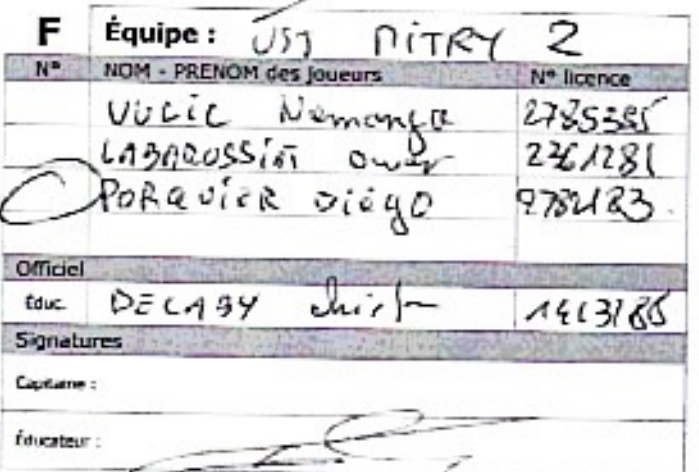 F Équipe : USJ MITRY 2
N° NOM - PRENOM des joueurs N° licence
VULIC Nemanja 2785385
LABAROSSIAT 2261281
PORQUIER Diégo
Officiel
Éduc. DELABY
Signatures
Capitaine :
Éducateur :